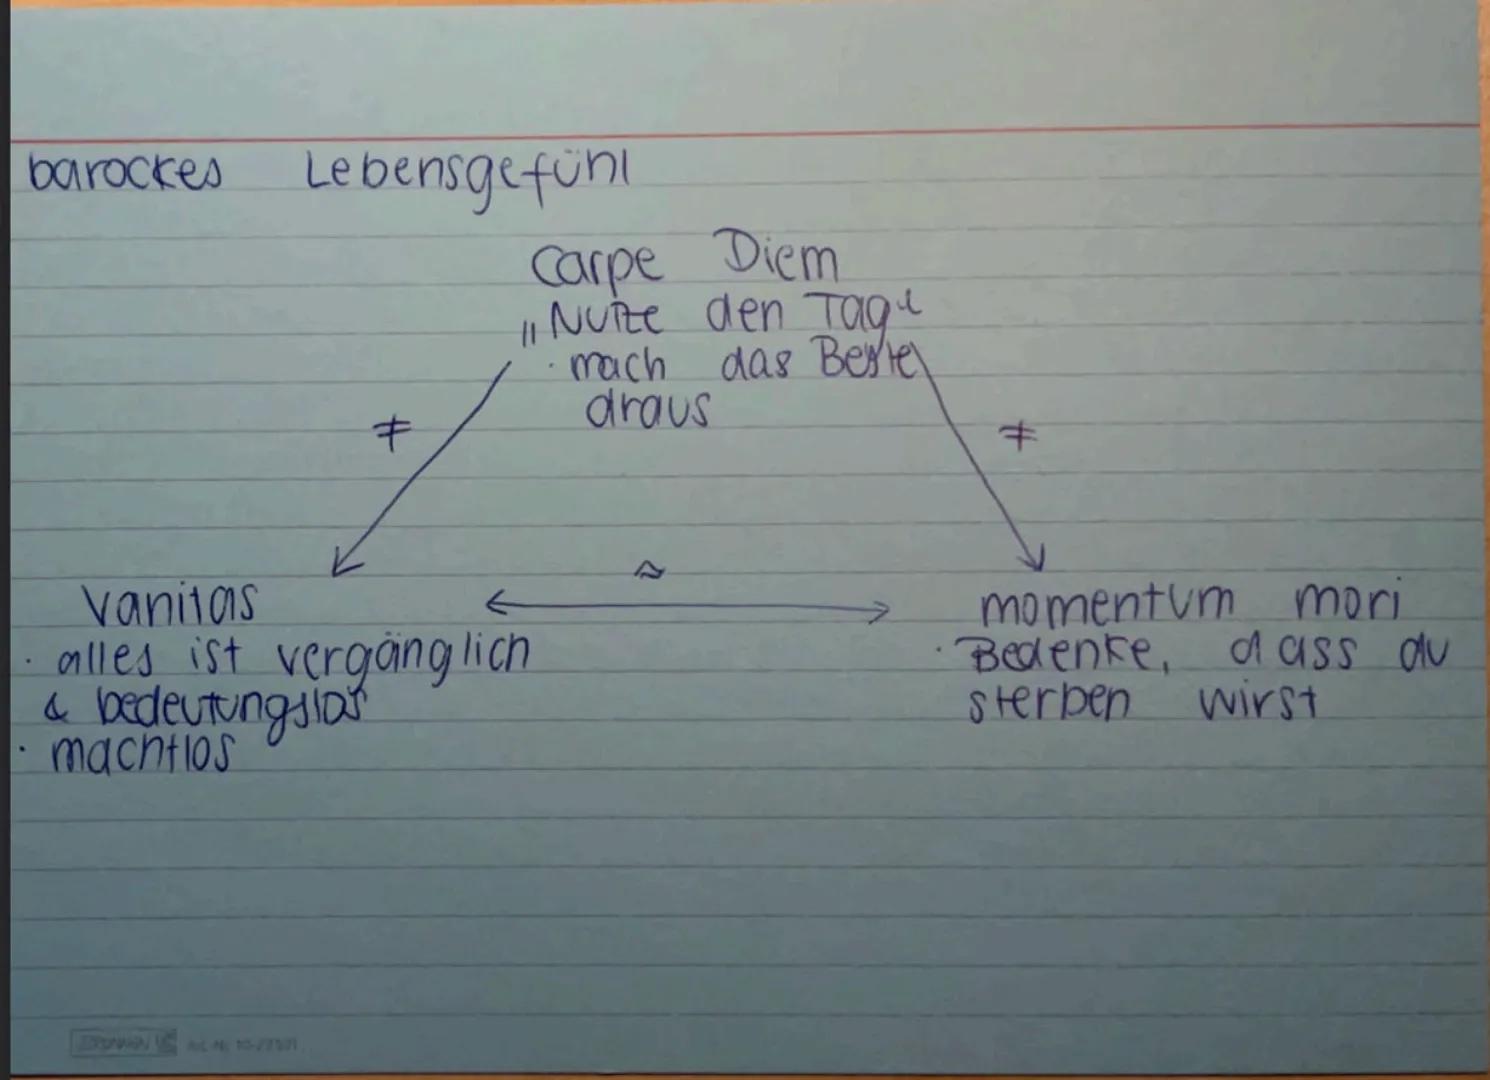 barockes Lebensgefühl
Carpe Diem
„Nutze den Tag“
· mach das Beste
draus
≠ ≠
≈
Vanitas
· alles ist vergänglich
& bedeutungslos
· machtlos
momentum mori
· Bedenke, dass du
sterben wirst